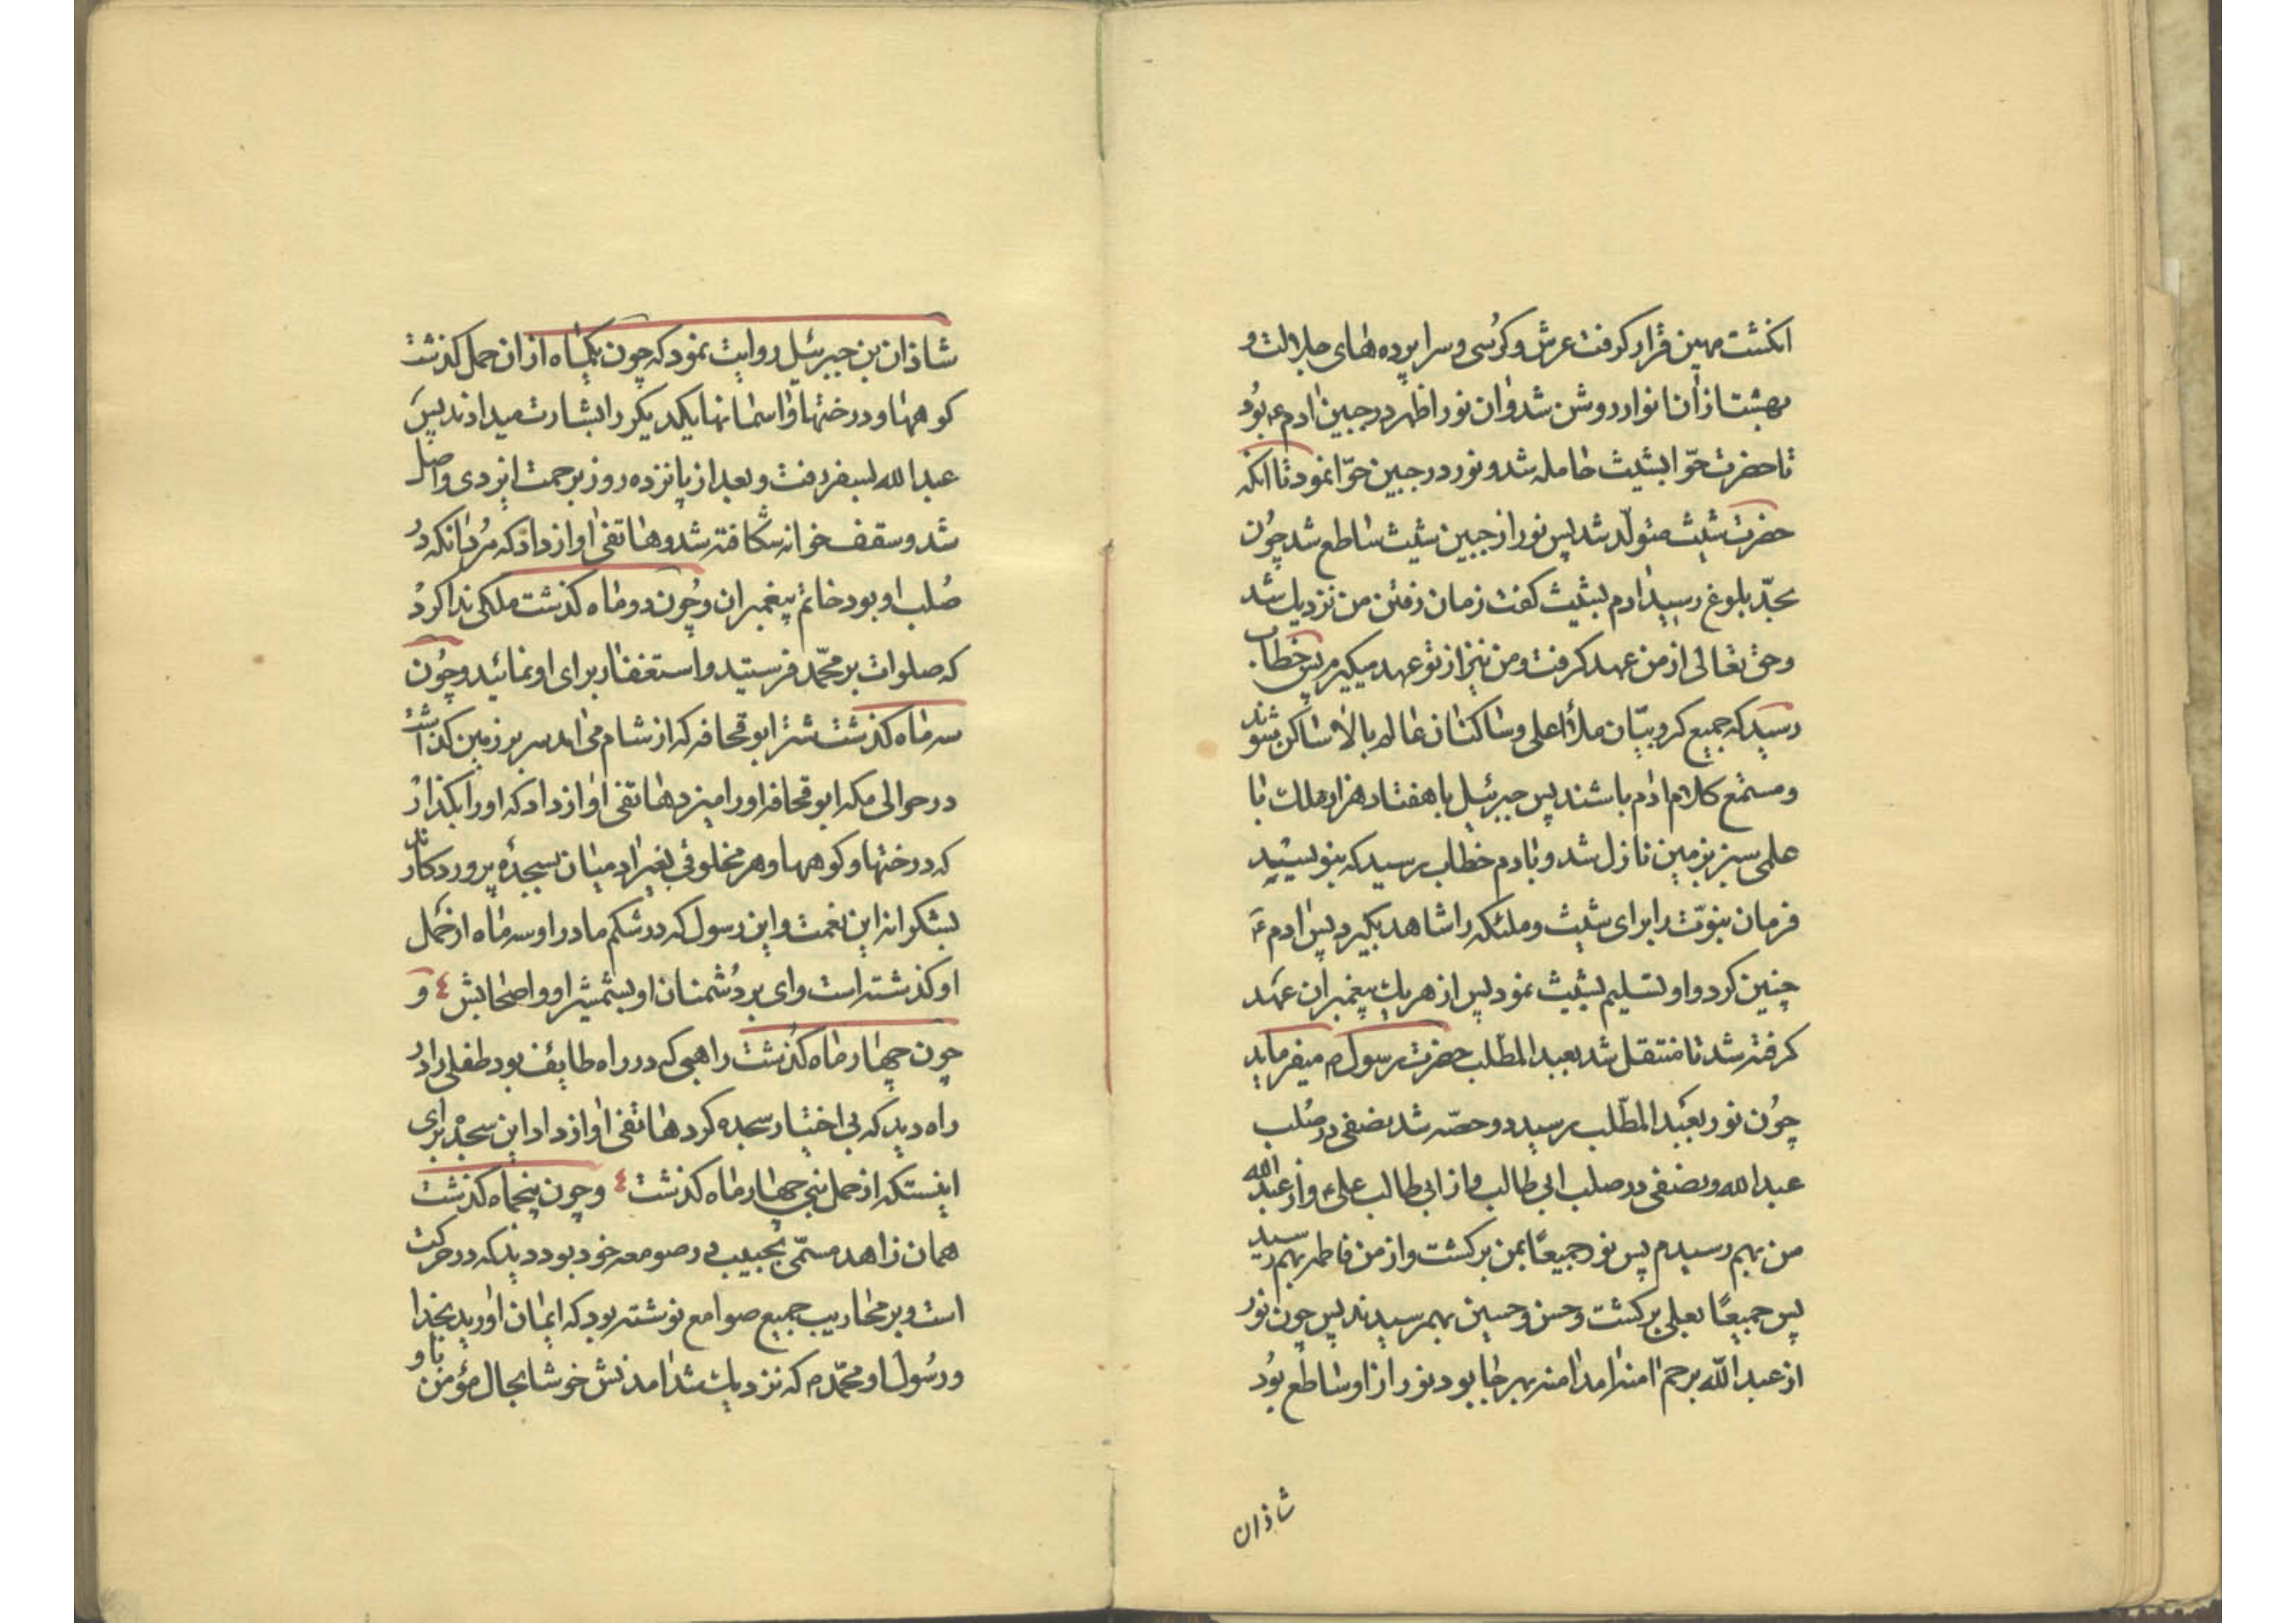 انکشت مهین قرار کرفت عرش و کرسی و سرا پرده های جلالت و
بهشت ازان انوار روشن شد وان نور اظهر در جبین ادم ع بود
تا حضرت حوّا بشیث حامله شد و نور در جبین حوّا نمود تا انکه
حضرت شیث متولّد شد پس نور از جبین شیث ساطع شد چون
بحدّ بلوغ رسید ادم بشیث کفت زمان رفتن من نزدیك شد
و حق تعالی از من عهد کرفت و من نیز از تو عهد میکیرم پس خطاب
رسید که جمیع کروبیّان ملأ اعلی و ساکنان عالم بالا ساکن شوند
و مستمع کلام ادم باشند پس جبرئیل با هفتاد هزار ملك با
علمی سبز بزمین نازل شد و بادم خطاب رسید که بنویسید
فرمان نبوّت را برای شیث و ملئکه را شاهد بکیرد پس ادم ع
چنین کرد و او تسلیم بشیث نمود پس از هر یك پیغمبران عهد
کرفته شد تا منتقل شد بعبد المطّلب حضرت رسول م میفرماید
چون نور بعبد المطّلب رسید دو حصّه شد نصفی در صلب
عبد الله و نصفی در صلب ابی طالب و از ابی طالب علی ع و از عبد الله
من بهم رسیدم پس نور جمیعًا بمن برکشت و از من فاطمه بهم رسید
پس جمیعًا بعلی برکشت و حسن و حسین بهم رسیدند پس چون نور
از عبد الله برحم امنه امد امنه بهر جا بود نور از او ساطع بود
شاذان
شاذان بن جبرئیل روایت نمود که چون یکماه ازان حمل کذشت
کوهها و درختها و اسمانها یکدیکر را بشارت میدادند پس
عبد الله بسفر رفت و بعد از پانزده روز برحمت ایزدی واصل
شد و سقف خوانه شکافته شد و هاتفی اواز داد که مرد انکه در
صلب او بود خاتم پیغمبران و چون دو ماه کذشت ملکی ندا کرد
که صلوات بر محمّد فرستید و استغفار برای او نمائید و چون
سه ماه کذشت شتر ابو قحافه که از شام می امد سر بر زمین کذاشت
در حوالی مکه ابو قحافه او را میزد هاتفی اواز داد که او را بکذار
که درختها و کوهها و هر مخلوقی بغیر ادمیان بسجدۀ پروردکارند
بشکرانه این نعمت و این رسول که در شکم مادر او سه ماه از حمل
او کذشته است وای بر دشمنان او بشمشیر او و اصحابش ٤ و
چون چهار ماه کذشت راهبی که در راه طایف بود طفلی را در
راه دید که بی اختیار سجده کرد هاتفی اواز داد این سجده برای
اینستکه از حمل نبی چهار ماه کذشت ٤ و چون پنجماه کذشت
همان زاهد مسمّی بحبیب در صومعه خود بود دید که در حرکت
است و بر محاریب جمیع صوامع نوشته بود که ایمان اورید بخدا
و رسول او محمّد م که نزدیك شد امدنش خوشا بحال مؤمن باو